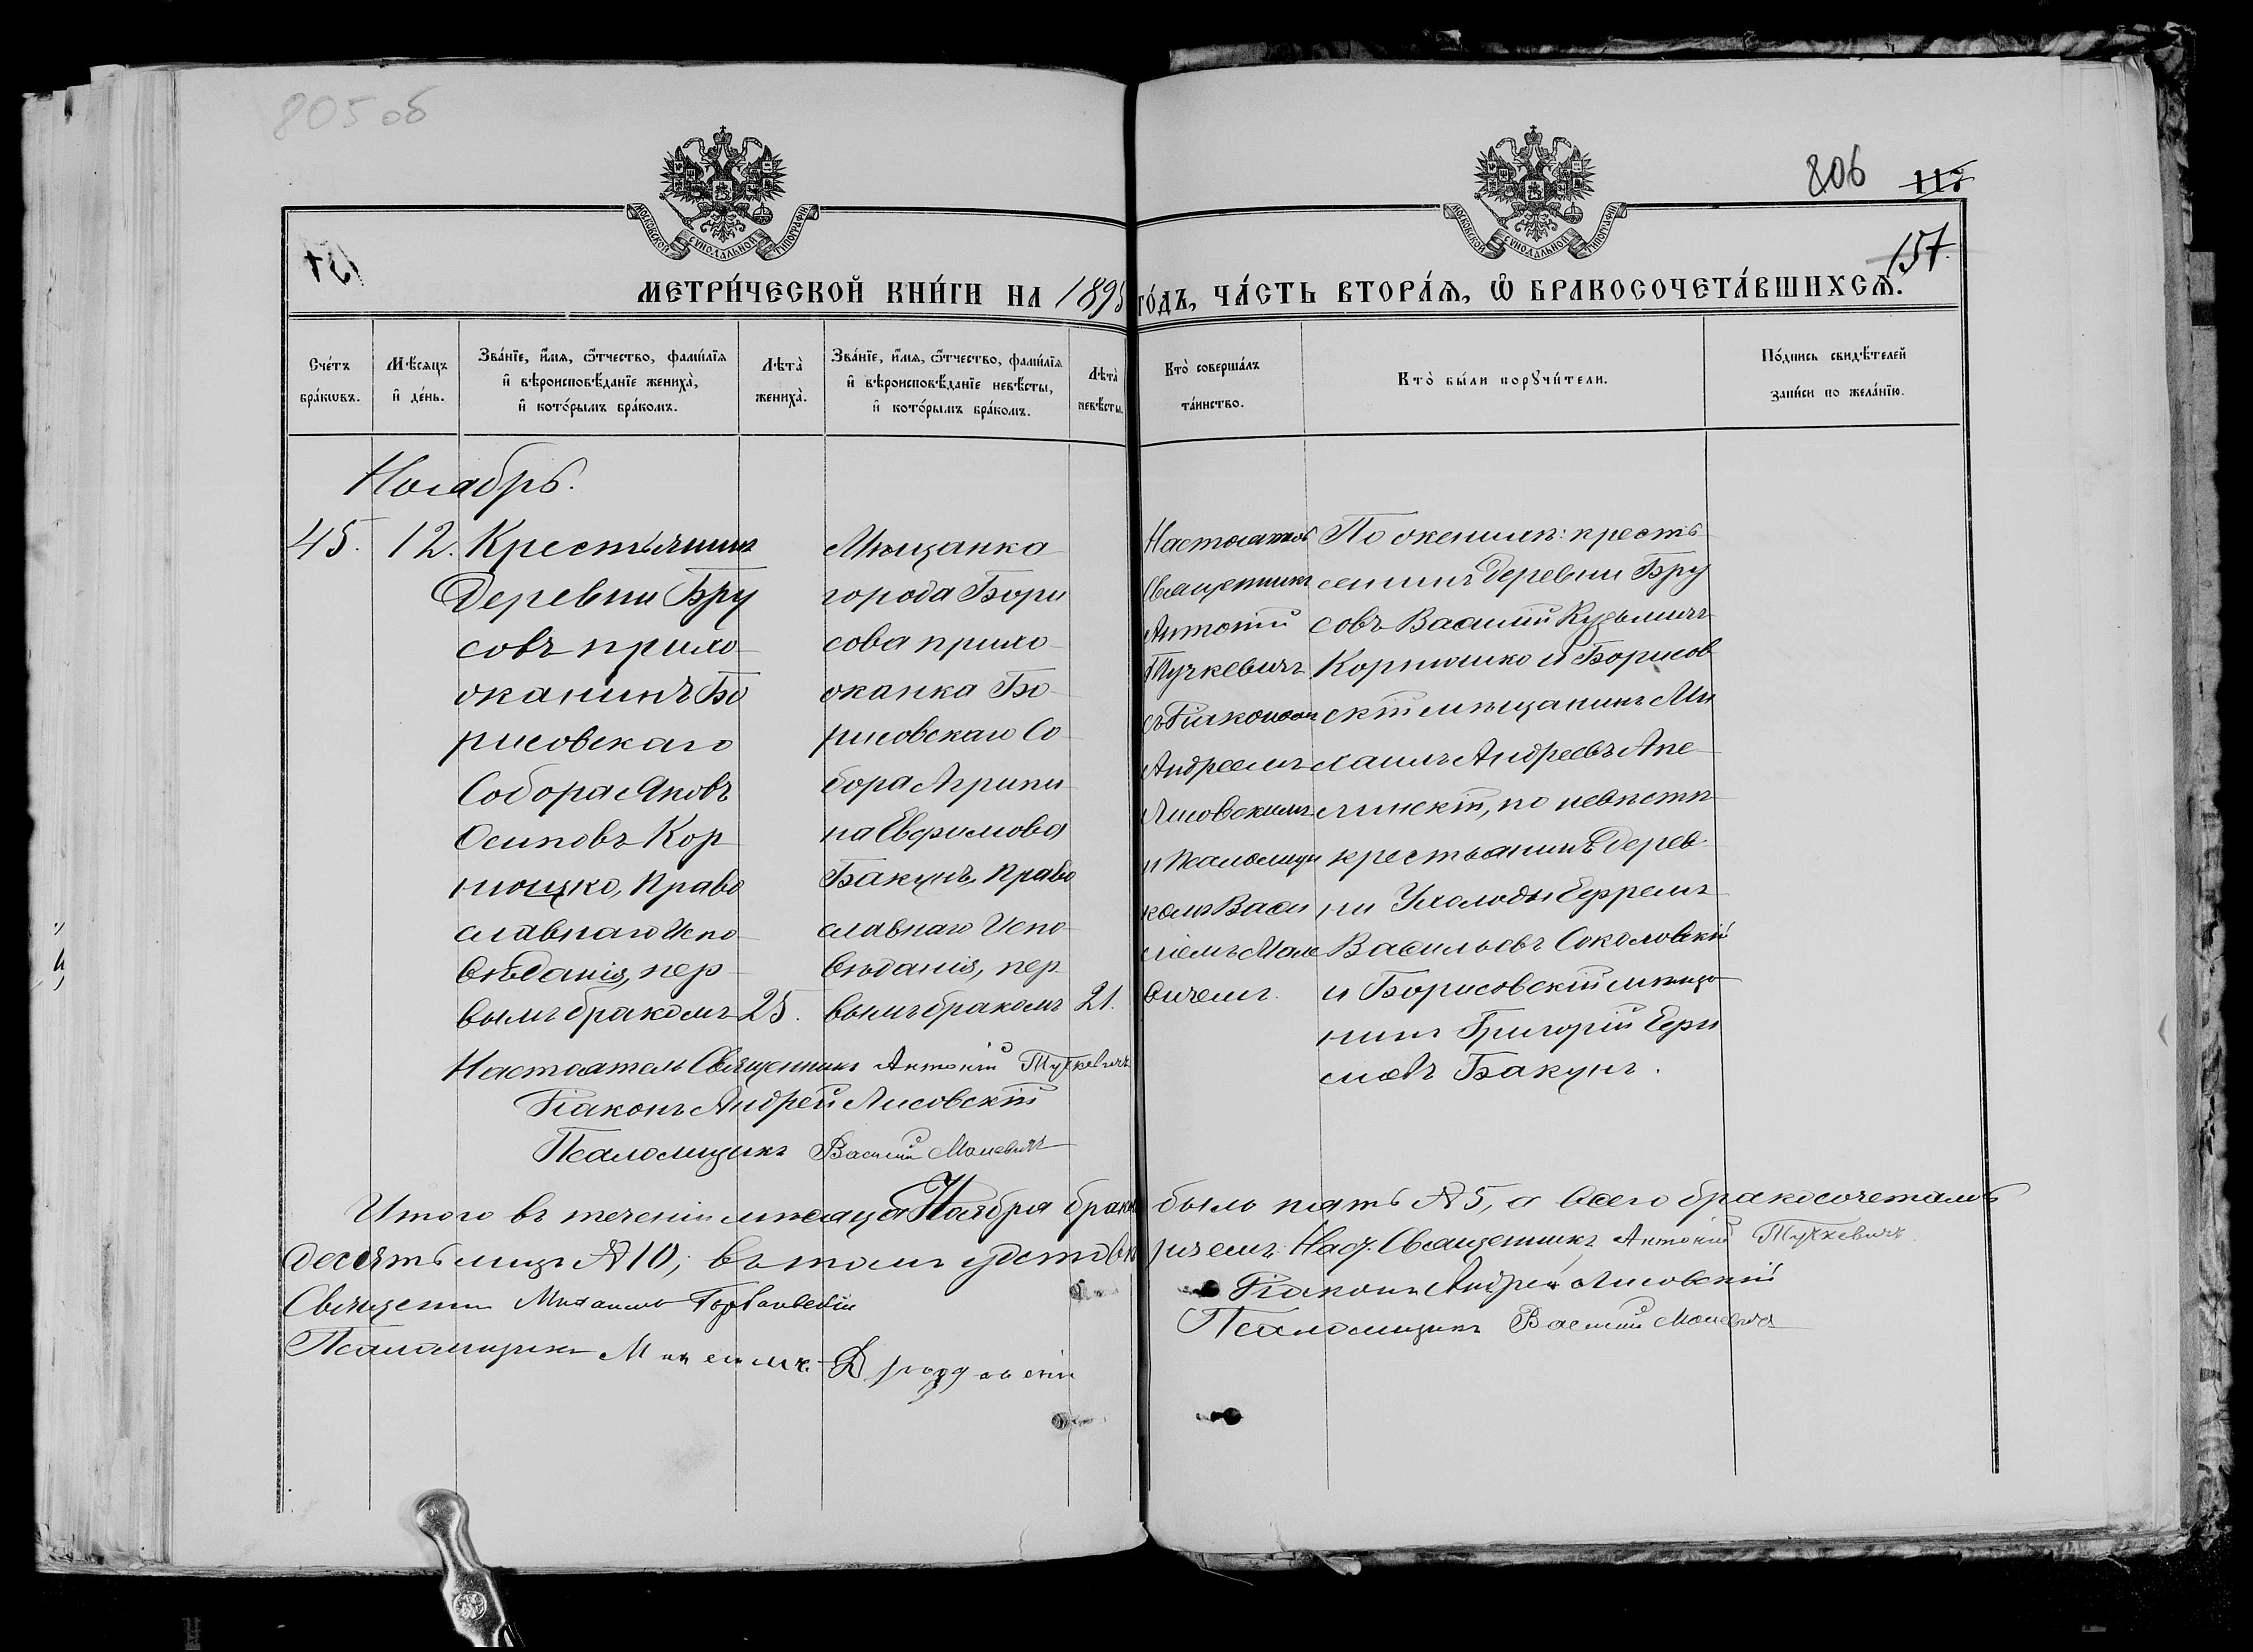 805 об
806
117
157.
МОСКОВСКОЙ СѴНОДАЛЬНОЙ ТИПОГРАФІИ
МОСКОВСКОЙ СѴНОДАЛЬНОЙ ТИПОГРАФІИ
МЕТРИ́ЧЕСКОЙ КНИ́ГИ НА 1895 ГО́ДЪ, ЧА́СТЬ ВТОРА́Я, Ѡ БРАКОСОЧЕТА́ВШИХСѦ.
Сче́тъ бра́кѡвъ.
Мѣ́сяцъ и҆ де́нь.
Зва́нїе, и҆́мя, ѻ҆́тчество, фами́лїя
и҆ вѣроисповѣ́данїе жениха̀,
и҆ кото́рымъ бра́комъ.
Лѣта̀ жениха̀.
Зва́нїе, и҆́мя, ѻ҆́тчество, фами́лїя
и҆ вѣроисповѣ́данїе невѣ́сты,
и҆ кото́рымъ бра́комъ.
Лѣта̀ невѣ́сты.
Кто̀ соверша́лъ
та́инство.
Кто̀ бы́ли порꙋчи́тели.
По́дпись свидѣ́телей
за́писи по жела́нїю.
Ноябрь.
45. 12. Крестьянинъ
Деревни Бру
совъ прихо
жанинъ Бо
рисовскаго
Собора Яковъ
Осиповъ Кор
нюшко, Право
славнаго Испо
вѣданія, пер
вымъ бракомъ 25.
Мѣщанка
города Бори
сова прихо
жанка Бо
рисовскаго Со
бора Агрипи
на Евфимова
Бакунъ, Право
славнаго Испо
вѣданія, пер
вымъ бракомъ 21.
Настоятель
Священникъ
Антоній
Тучкевичъ
съ Діакономъ
Андреемъ
Лисовскимъ
и Псаломщи
комъ Васи
ліемъ Мане
вичемъ.
По женихѣ: кресть
янинъ деревни Бру
совъ Василій Кузьминъ
Корнюшко и Борисов
скій мѣщанинъ Ми
хаилъ Андреевъ Апе
линскій, по невѣстѣ
крестьянинъ дерев
ни Ухолоды Ефремъ
Васильевъ Соколовскій
и Борисовскій мѣща
нинъ Григорій Ефи
мовъ Бакунъ.
Настоятель Священникъ Антоній Тучкевичъ
Діаконъ Андрей Лисовскій
Псаломщикъ Василій Маневичъ
Итого въ теченіи мѣсяца Ноября браковъ было пять № 5, а всего бракосочеталось
десять лицъ № 10; въ томъ удостовѣряемъ: Наст. Священникъ Антоній Тучкевичъ
Діаконъ Андрей Лисовскій
Псаломщикъ Василій Маневичъ
Священникъ Михаилъ
Псаломщикъ